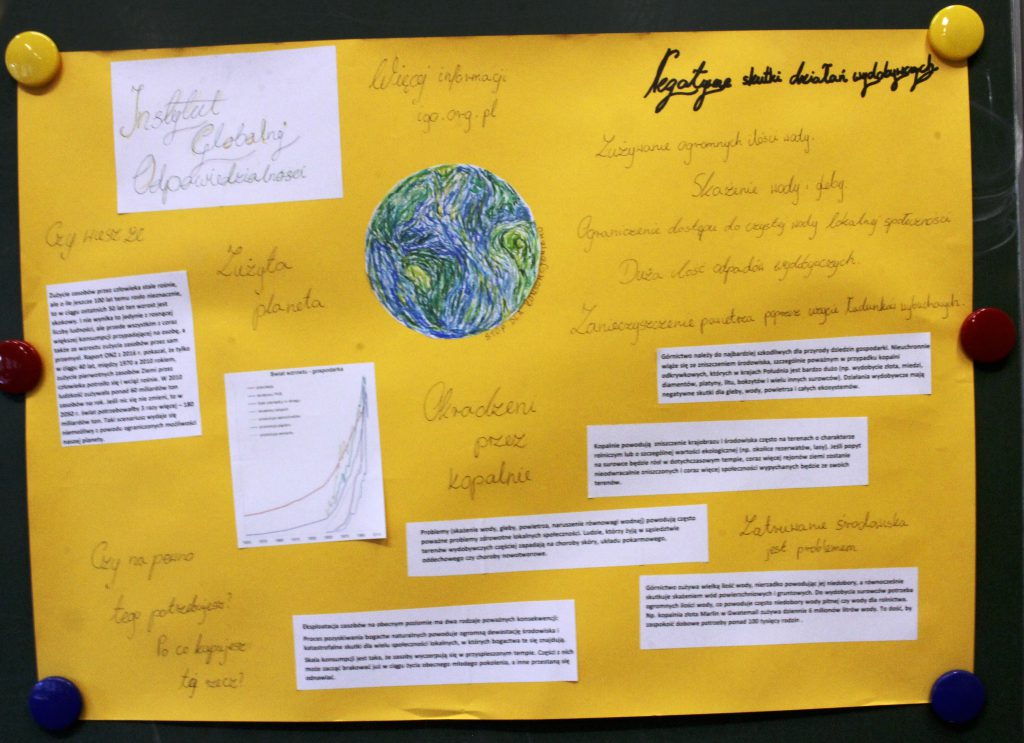 Instytut
Globalnej
Odpowiedzialności
Więcej informacji
igo.org.pl
Negatywne skutki działań wydobywczych
Zużywanie ogromnych ilości wody.
Skażenie wody i gleby.
Ograniczenie dostępu do czystej wody lokalnej społeczności
Duża ilość odpadów wydobywczych.
Zanieczyszczenie powietrza poprzez użycie ładunków wybuchowych.
Czy wiesz że
Zużycie zasobów przez człowieka stale rośnie,
ale o ile jeszcze 100 lat temu rosło nieznacznie,
to w ciągu ostatnich 50 lat ten wzrost jest
skokowy. I nie wynika to jedynie z rosnącej
liczby ludności, ale przede wszystkim z coraz
większej konsumpcji przypadającej na osobę, a
także ze wzrostu zużycia zasobów przez sam
przemysł. Raport ONZ z 2016 r. pokazał, że tylko
w ciągu 40 lat, między 1970 a 2010 rokiem,
zużycie pierwotnych zasobów Ziemi przez
człowieka potroiło się i wciąż rośnie. W 2010
ludzkość zużywała ponad 60 miliardów ton
zasobów na rok. Jeśli nic się nie zmieni, to w
2050 r. świat potrzebowałby 3 razy więcej – 180
miliardów ton. Taki scenariusz wydaje się
niemożliwy z powodu ograniczonych możliwości
naszej planety.
Zużyta
planeta
Świat wzrostu - gospodarka
Okradzeni
przez
kopalnie
Górnictwo należy do najbardziej szkodliwych dla przyrody dziedzin gospodarki. Nieuchronnie
wiąże się ze zniszczeniem środowiska, szczególnie poważnym w przypadku kopalni
odkrywkowych, których w krajach Południa jest bardzo dużo (np. wydobycie złota, miedzi,
diamentów, platyny, litu, boksytów i wielu innych surowców). Działania wydobywcze mają
negatywne skutki dla gleby, wody, powietrza i całych ekosystemów.
Kopalnie powodują zniszczenie krajobrazu i środowiska często na terenach o charakterze
rolniczym lub o szczególnej wartości ekologicznej (np. okolice rezerwatów, lasy). Jeśli popyt
na surowce będzie rósł w dotychczasowym tempie, coraz więcej rejonów ziemi zostanie
nieodwracalnie zniszczonych i coraz więcej społeczności wypychanych będzie ze swoich
terenów.
Problemy (skażenie wody, gleby, powietrza, naruszenie równowagi wodnej) powodują często
poważne problemy zdrowotne lokalnych społeczności. Ludzie, którzy żyją w sąsiedztwie
terenów wydobywczych częściej zapadają na choroby skóry, układu pokarmowego,
oddechowego czy choroby nowotworowe.
Zatruwanie środowiska
jest problemem
Górnictwo zużywa wielką ilość wody, nierzadko powodując jej niedobory, a równocześnie
skutkuje skażeniem wód powierzchniowych i gruntowych. Do wydobycia surowców potrzeba
ogromnych ilości wody, co powoduje często niedobory wody pitnej czy wody dla rolnictwa.
Np. kopalnia złota Marlin w Gwatemali zużywa dziennie 6 milionów litrów wody. To dość, by
zaspokoić dobowe potrzeby ponad 100 tysięcy rodzin .
Czy na pewno
tego potrzebujesz?
Po co kupujesz
tę rzecz?
Eksploatacja zasobów na obecnym poziomie ma dwa rodzaje poważnych konsekwencji:
Proces pozyskiwania bogactw naturalnych powoduje ogromną dewastację środowiska i
katastrofalne skutki dla wielu społeczności lokalnych, w których bogactwa te się znajdują.
Skala konsumpcji jest taka, że zasoby wyczerpują się w przyspieszonym tempie. Części z nich
może zacząć brakować już w ciągu życia obecnego młodego pokolenia, a inne przestaną się
odnawiać.